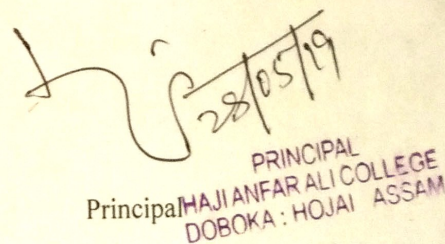 28/05/19
PRINCIPAL
Principal HAJI ANFAR ALI COLLEGE
DOBOKA : HOJAI ASSAM